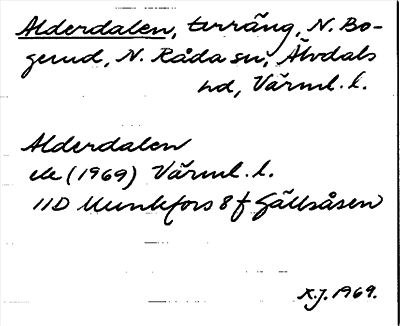 Alderdalen, terräng, N. Bo-
gerud, N. Råda sn, Älvdals
hd, Värml. l.
Alderdalen
ek (1969) Värml. l.
11D Munkfors 8 f Gällsåsen
R.J. 1969.